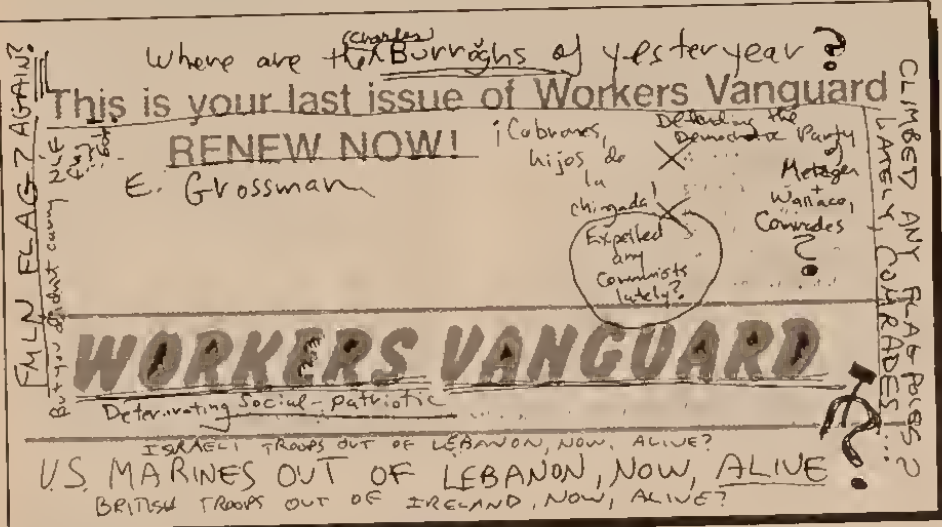 Where are the (Charles) Burroghs of yesteryear?
This is your last issue of Workers Vanguard
RENEW NOW!
E. Grossman
¡Cabrones,
hijos de
la
chingada!
Expelled
any
Communists
lately?
Defending the
Democratic Party
Metzger
+
Wallace,
Comrades
?
FMLN FLAG? AGAIN?
But you didn't carry NLF
CLIMBED ANY FLAG POLES?
LATELY, COMRADES...?
WORKERS VANGUARD
Deteriorating Social-patriotic
ISRAELI TROOPS OUT OF LEBANON, NOW, ALIVE?
U.S. MARINES OUT OF LEBANON, NOW, ALIVE
BRITISH TROOPS OUT OF IRELAND, NOW, ALIVE?